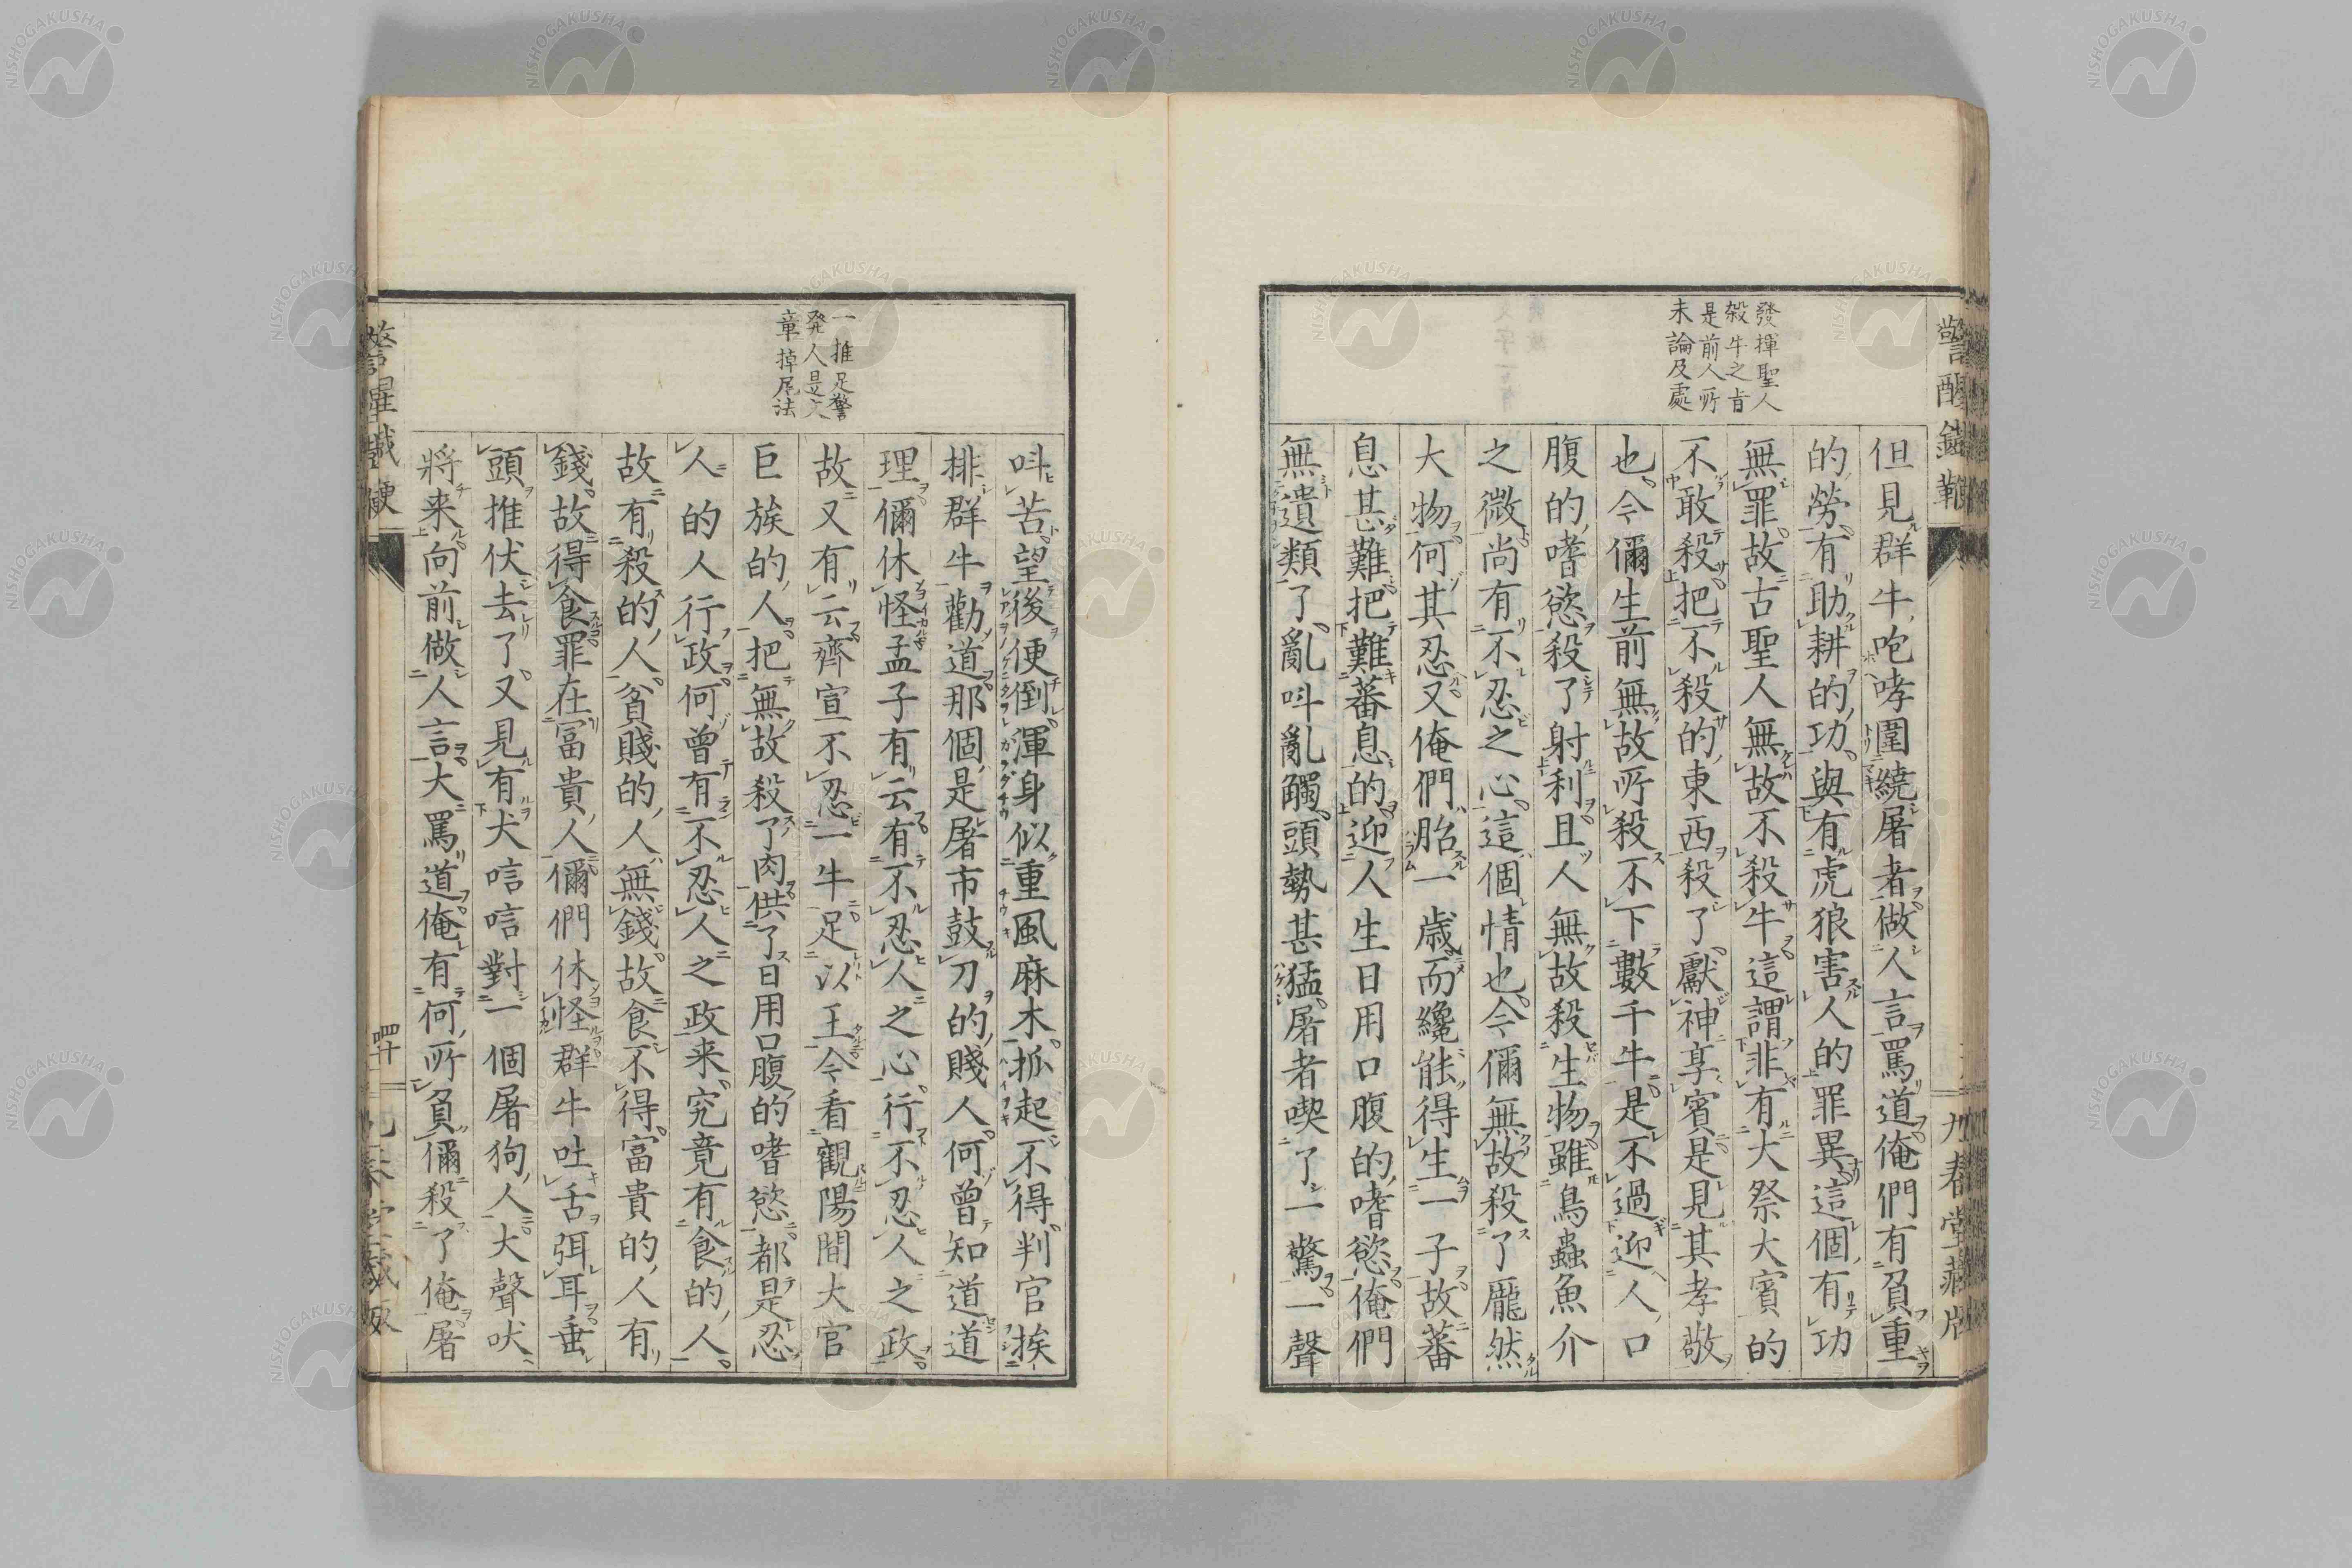 警醒鐵鞭
九春堂藏版
發揮聖人
殺牛之旨
是前人所
未論及處
但見群牛咆哮圍繞屠者做人言罵道俺們有負重
的勞有助耕的功與有虎狼害人的罪異這個有功
無罪故古聖人無故不殺牛這謂非有大祭大賓的
不敢殺把不殺的東西殺了獻神享賓是見其孝敬
也今儞生前無故所殺不下數千牛是不過迎人口
腹的嗜慾殺了射利且人無故殺生物雖鳥蟲魚介
之微尚有不忍之心這個情也今儞無故殺了龐然
大物何其忍又俺們胎一歲而纔能得生一子故蕃
息甚難把難蕃息的迎人生日用口腹的嗜慾俺們
無遺類了亂呌亂觸頭勢甚猛屠者喫了一驚一聲
一推足警
発人是文
章掉尾法
呌苦望後便倒渾身似重風麻木抓起不得判官挨
排群牛勸道那個是屠市鼓刀的賤人何曾知道道
理儞休怪孟子有云有不忍人之心行不忍人之政
故又有云齊宣不忍一牛足以王今看觀陽間大官
巨族的人把無故殺了肉供了日用口腹的嗜慾都是忍
人的人行政何曾有不忍人之政来究竟有食的人
故有殺的人貧賤的人無錢故食不得富貴的人有
錢故得食罪在富貴人儞們休怪群牛吐舌弭耳垂
頭推伏去了又見有犬唁唁對一個屠狗人大聲吠
將来向前做人言大罵道俺有何所負儞殺了俺屠
警醒鐵鞭
四十
九春堂藏版